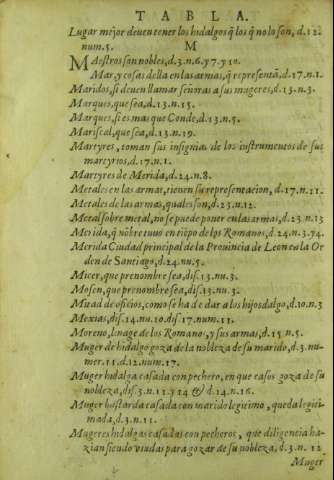 TABLA.
Lugar mejor deuen tener los hidalgos q̃ los q̃ no lo son, d.12.
num.5.
M
MAestros son nobles, d.3.n.6.y 7.y 10.
Mar, y cosas della en las armas, q̃ representã, d.17.n.1.
Maridos, si deuen llamar señoras a sus mugeres, d.13.n.3.
Marques, que sea, d.13.n.15.
Marques, si es mas que Conde, d.13.n.5.
Mariscal, que sea, d.13.n.19.
Martyres, toman sus insignias de los instrumentos de sus
martyrios, d.17.n.1.
Martyres de Merida, d.24.n.8.
Metales en las armas, tienen su representacion, d.17.n.11.
Metales de las armas, quales son, d.23.n.12.
Metal sobre metal, no se puede poner en las armas, d.23.n.13
Merida, q̃ nõbre tuuo en tiẽpo de los Romanos, d.24.n.3.74.
Merida Ciudad principal de la Prouincia de Leon en la Or
den de Santiago, d.24.nu.5.
Micer, que prenombre sea, dis.13.nu.3.
Mosen, que prenombre sea, dis.13.nu.3.
Mitad de oficios, como se ha de dar a los hijosdalgo, d.10.n.3
Mexias, dis.14.nu.10.dis.17.num.13.
Moreno, linage de los Romanos, y sus armas, d.15 n.5.
Muger de hidalgo goza de la nobleza de su marido, d.3.nu-
mer.11.d.12.num.17.
Muger hidalga casada con pechero, en que casos goza de su
nobleza, dis.3.n.11.y 14 & d.14.n.16.
Muger bastarda casada con marido legitimo, queda legiti-
mada, d.3.n.11.
Mugeres hidalgas casadas con pecheros, que diligencia ha-
zian siendo viudas para gozar de su nobleza, d.3.n.12
Muger